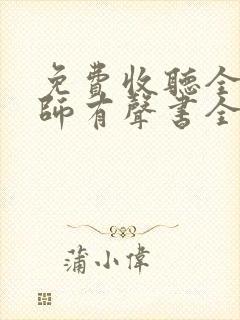 免費收聽全
師有聲書全
蒲小偉